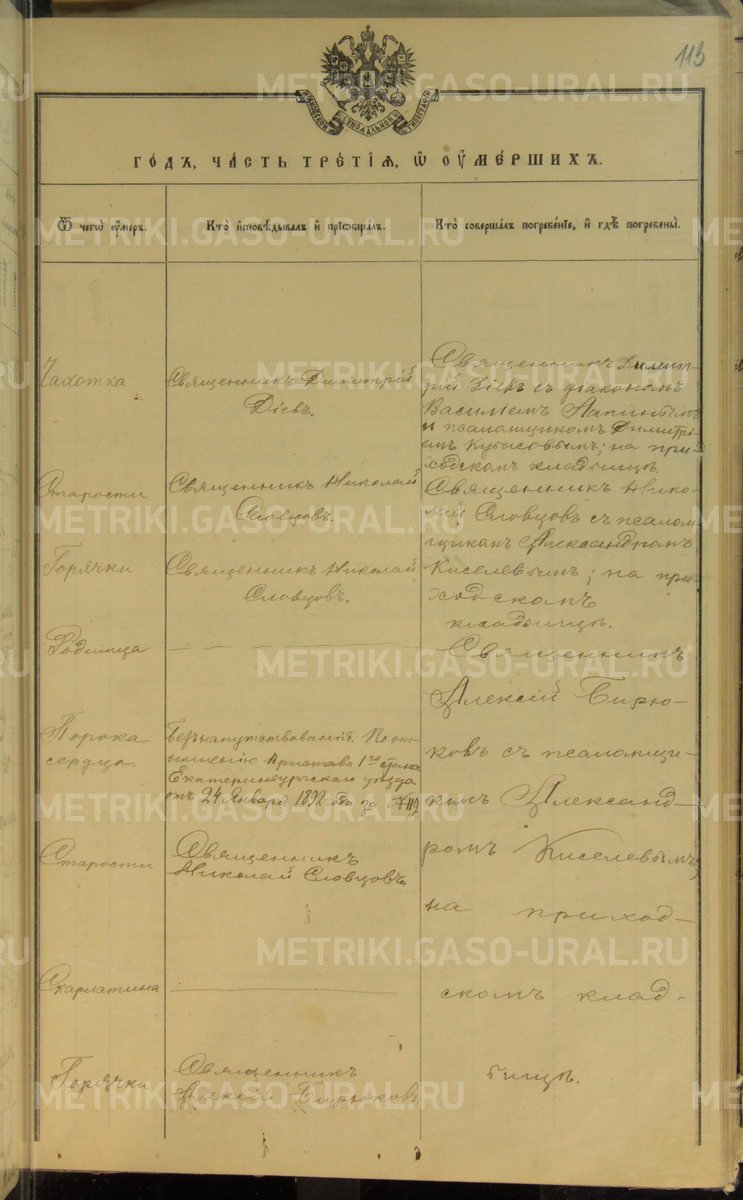 113
МОСКОВСКОЙ СѴНОДАЛЬНОЙ ТИПОГРАФІИ
ГОДЪ, ЧАСТЬ ТРЕТІЯ, Ѿ ОУМЕРШИХЪ.
Ѿ чегѡ оумеръ.
Кто исповѣдывалъ и пріобщалъ.
Кто совершалъ погребеніе, и гдѣ погребены.
Чахотка
Священникъ Димитрій
Діевъ.
Священникъ Димит-
рій Діевъ съ діакономъ
Василіемъ Лапинымъ
и псаломщикомъ Димитрі-
емъ Кубасовымъ; на при-
ходскомъ кладбищѣ
Старости
Священникъ Николай
Словцовъ.
Священникъ Нико-
лай Словцовъ съ псалом-
щикомъ Александромъ
Киселевымъ; на при-
ходскомъ
кладбищѣ.
Горячки
Священникъ Николай
Словцовъ.
Родимца
Священникъ
Алексій Бирю-
ковъ съ псаломщи-
комъ Александ-
ромъ Киселевымъ;
на приход-
скомъ клад-
бищѣ.
Порока
сердца.
Безъ напутствованія. По от-
ношенію Пристава 1го стана
Екатеринбургскаго уѣзда
отъ 24 Января 1892 года за №
Старости
Священникъ
Николай Словцовъ
Скарлатина
Горячки
Священникъ
Алексій Бирюковъ
METRIKI.GASO-URAL.RU